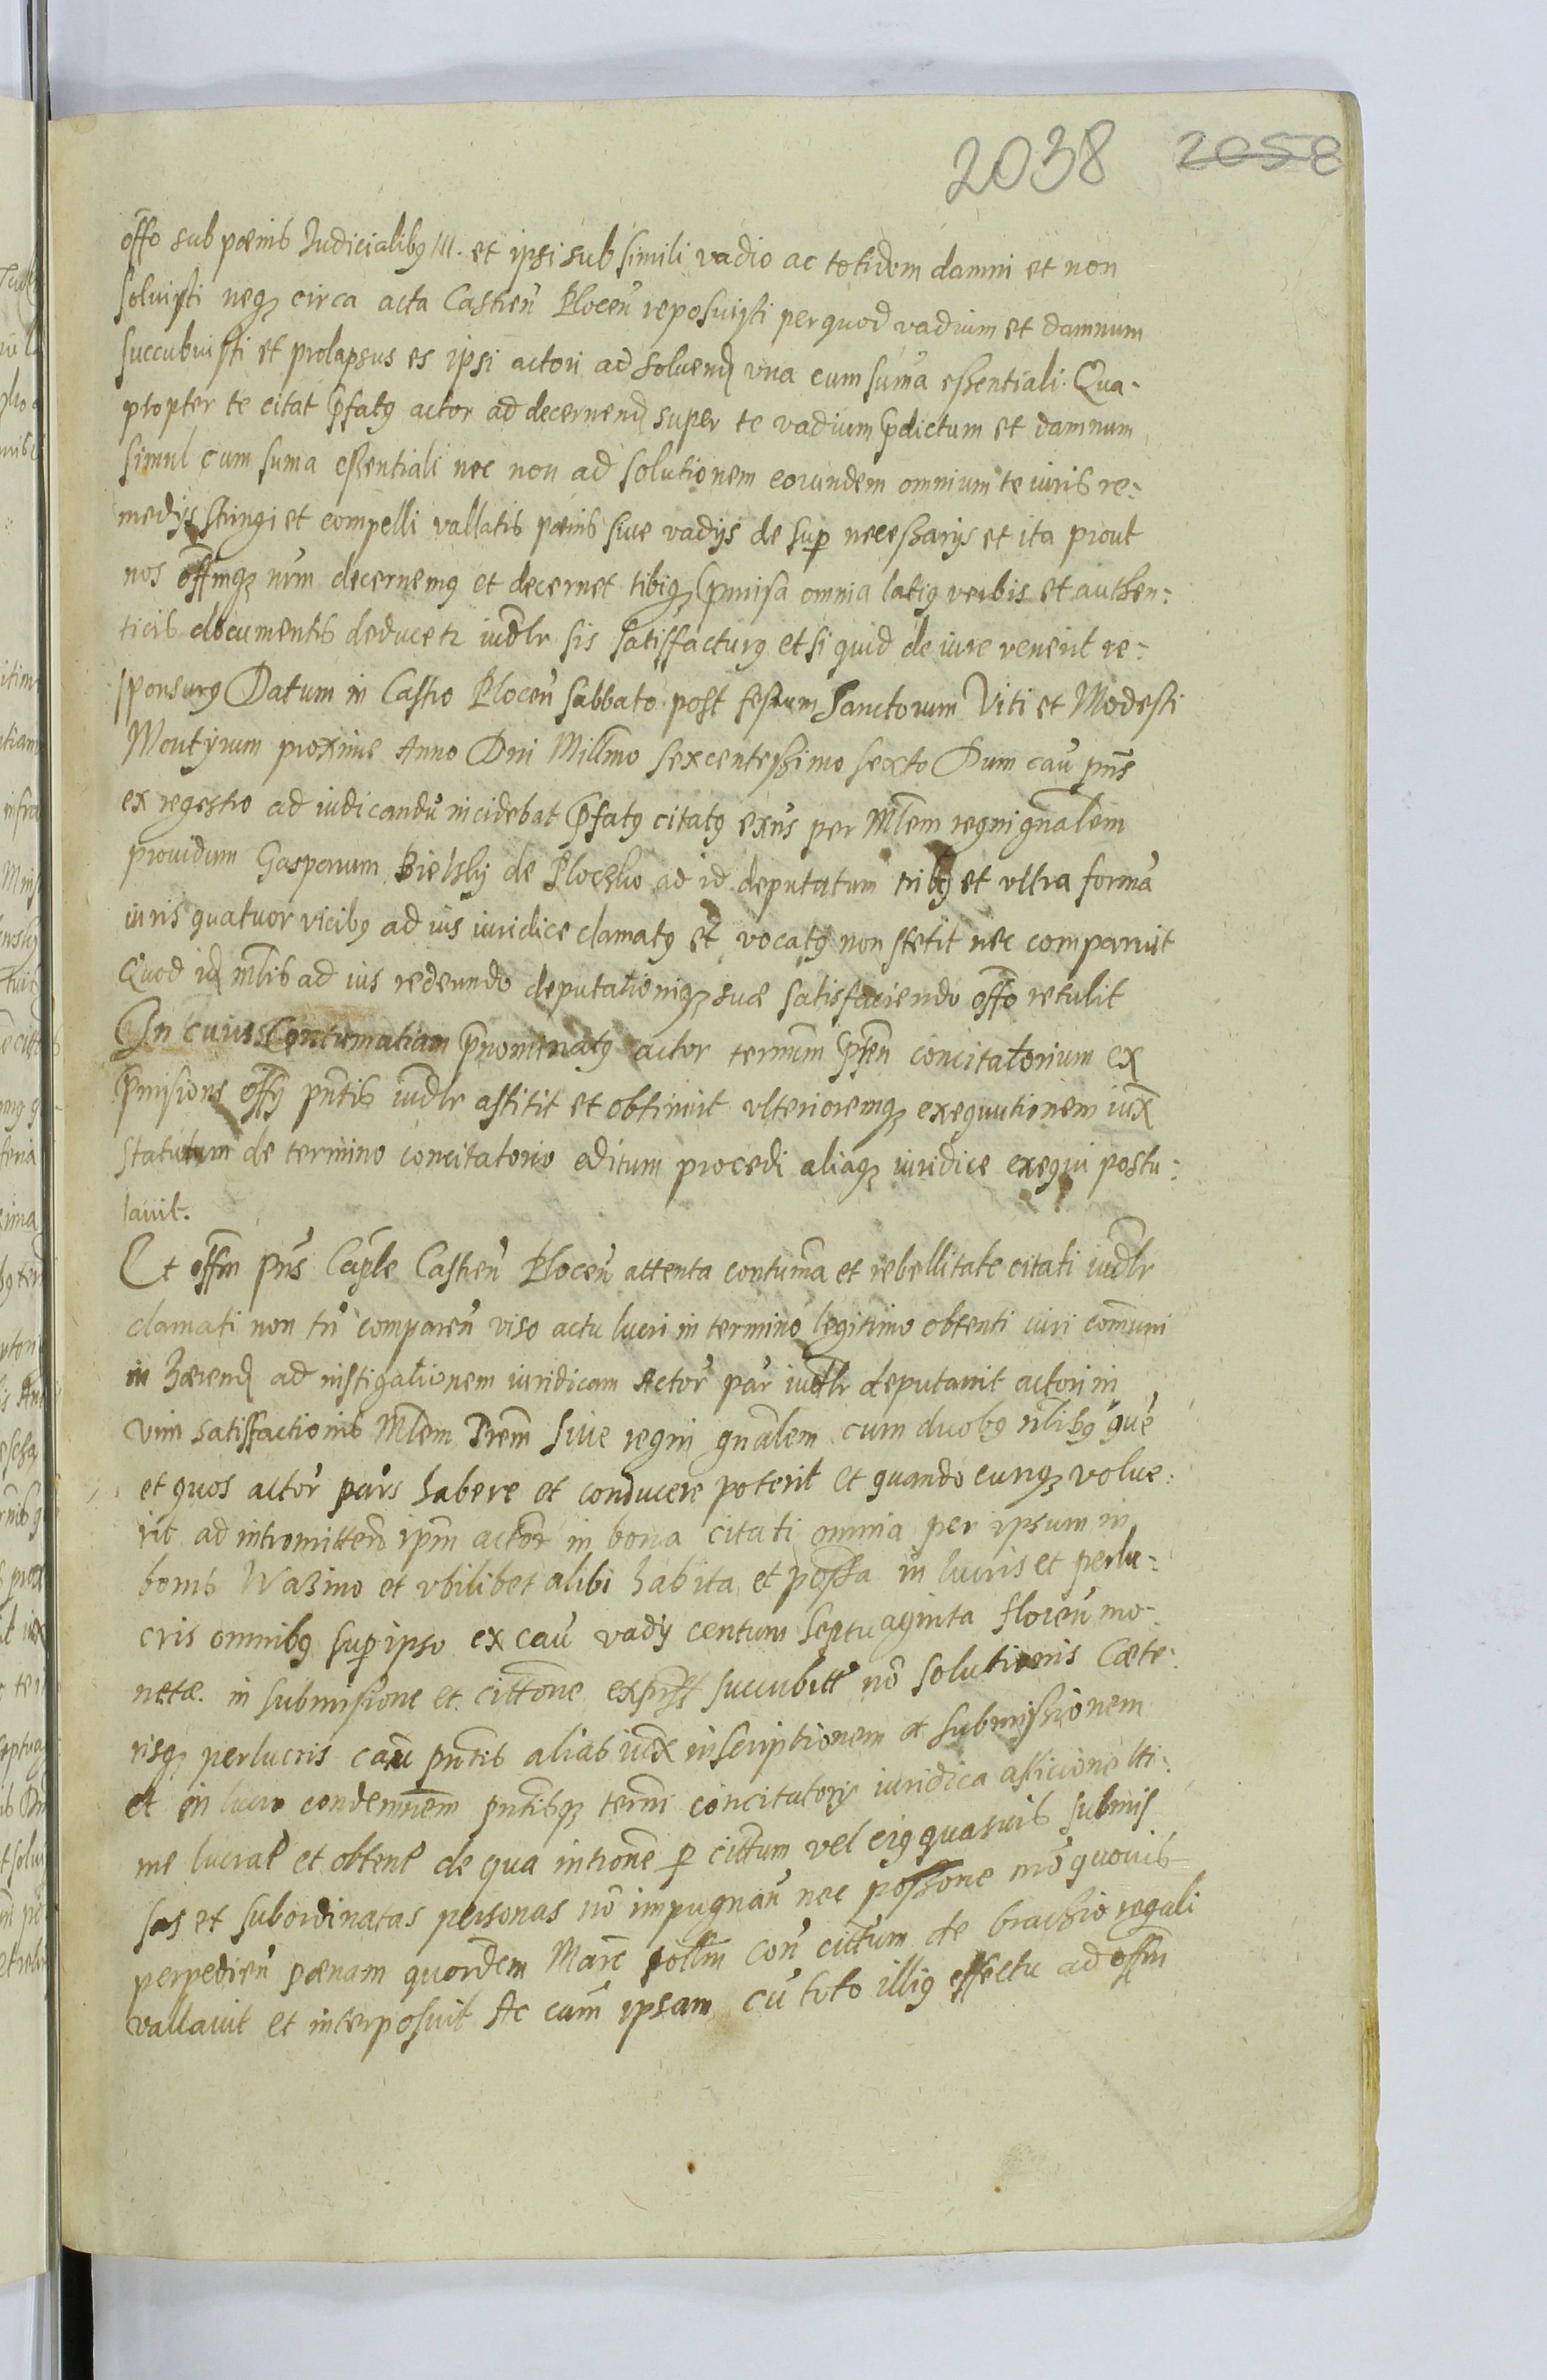 2038 2058
offo sub pœnis Iudicialibꝫ III. et ipsi sub simili vadio ac totidem damni et non
soluisti neqꝫ circa acta Castren̄ Plocen̄ reposuisti per quod vadium et damnum
succubuisti et prolapsus es ipsi actori ad soluend una cum suma̅ essentiali. Qua-
propter te citat p̄fatꝫ actor ad decernend super te vadium p̄dictum et damnum
simul cum suma essentiali nec non ad solutionem eorundem omnium te iuris re-
medijs stringi et compelli vallatis pœnis siue vadijs de sup necessarijs et ita prout
nos offmqꝫ nrm decernemꝫ et decernet tibiqꝫ p̄missa omnia latiꝫ verbis et authen:
ticis documentis deducetr iudlr sis satisfacturꝫ et si quid de iure venerit re:
sponsurꝫ Datum in Castro Plocen̄ Sabbato post festum Sanctorum Viti et Modesti
Martyrum proxime Anno Dni Millmo sexcentessimo sexto Dum cau̅ pn̄s
ex regestro ad iudicandu̅ incidebat p̄fatꝫ citatꝫ exn̄s per Mlem regni gn̄alem
prouidum Gasparum Bielsky de Ploczko ad id deputatum tribꝫ et ultra forma̅
iuris quatuor vicibꝫ ad ius iuridice clamatꝫ et vocatꝫ non stetit nec comparuit
Quod id mlis ad ius redeundo deputationiqꝫ suæ satisfaciendo offo retulit
In cuius Contumatiam p̄nominatꝫ actor ternum p̄sen concitatorium ex
p̄missione offꝫ pn̄tis iudlr astitit et obtinuit ulterioremqꝫ exequutionem iux
statutum de termino concitatorio æditum procedi aliaqꝫ iuridice exequi postu:
lauit.
Et offm pn̄s Caple Castren̄ Plocen̄ attenta contuma̅ et rebellitate citati iudlr
clamati non tn̄ comparen̄ viso actu lucri in termino legitimo obtenti iuri comuni
in hærend ad instigationem iuridicam Actor̄ par̄ iudlr deputauit actori in
vim satisfactionis Mlem Trem siue regni gn̄alem cum duobꝫ nlibꝫ que
et quos actor pars habere et conducere poterit et quando cunqꝫ volue:
rit ad intromitten̄d ipm actor̄ in bona citati omnia per ipsum in
bonis Wazino et ubilibet alibi habita et possa in lucris et perlu:
cris omnibꝫ sup ipso ex cau̅ vadij centum septuaginta floren̄ mo-
netæ. in submissione et cittōne succubitt no̅ solutionis Cæte:
risqꝫ perlucris cau̅ pn̄tis alias iux inscriptionem et submissionem
et in lucro condemnem pn̄tisqꝫ termi concitatorij iuridica
me lucrat et obtent de qua introne p cittum vel eiꝫ quasuis submis
sas et subordinatas personas no̅ impugnan̄ nec possone mo̅ quouis
perpedien̄ pœnam quordem Marc pollm con̄ cittum de brachio regali
vallauit et interposuit Ac cam ipsam cu̅ toto illiꝫ effectu ad offm